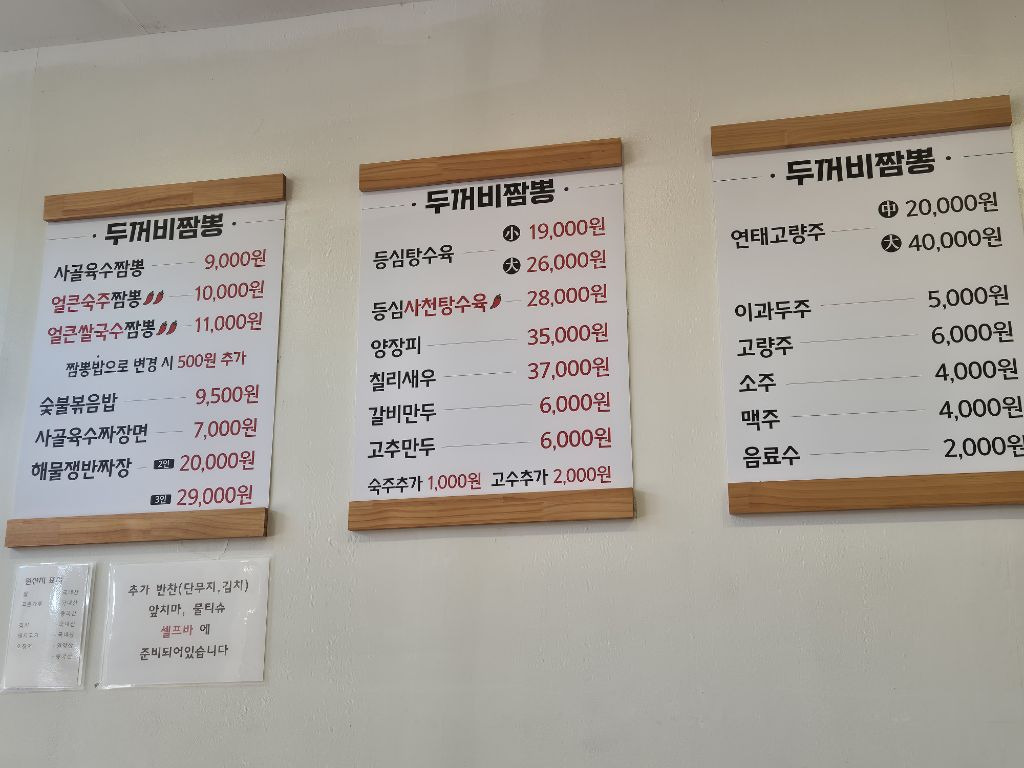 · 두꺼비짬뽕 ·
사골육수짬뽕 9,000원
얼큰숙주짬뽕 10,000원
얼큰쌀국수짬뽕 11,000원
짬뽕밥으로 변경 시 500원 추가
숯불볶음밥 9,500원
사골육수짜장면 7,000원
해물쟁반짜장 2인 20,000원
3인 29,000원
· 두꺼비짬뽕 ·
등심탕수육 小 19,000원
大 26,000원
등심사천탕수육 28,000원
양장피 35,000원
칠리새우 37,000원
갈비만두 6,000원
고추만두 6,000원
숙주추가 1,000원 고수추가 2,000원
· 두꺼비짬뽕 ·
연태고량주 中 20,000원
大 40,000원
이과두주 5,000원
고량주 6,000원
소주 4,000원
맥주 4,000원
음료수 2,000원
원산지 표시
추가 반찬(단무지,김치)
앞치마, 물티슈
셀프바 에
준비되어있습니다